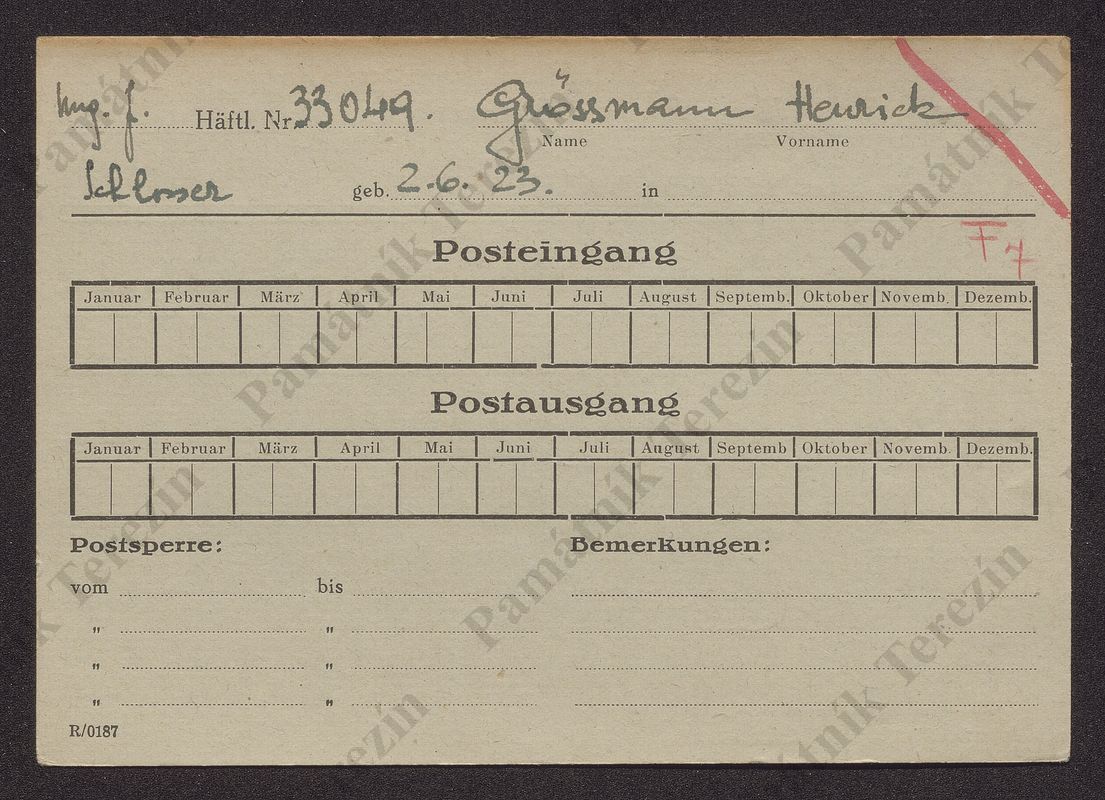 Ung. J. Häftl. Nr. 33049. Grössmann Henrick
Name Vorname
Schlosser geb. 2.6.23. in
F 7
Posteingang
Januar Februar März April Mai Juni Juli August Septemb. Oktober Novemb. Dezemb.
Postausgang
Januar Februar März April Mai Juni Juli August Septemb Oktober Novemb. Dezemb.
Postsperre: Bemerkungen:
vom bis
" "
" "
" "
R/0187
Památník Terezín